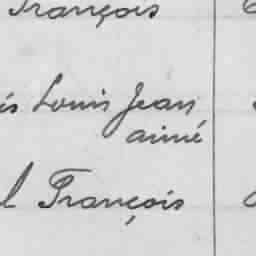 François
is Louis Jean
aimé
l François